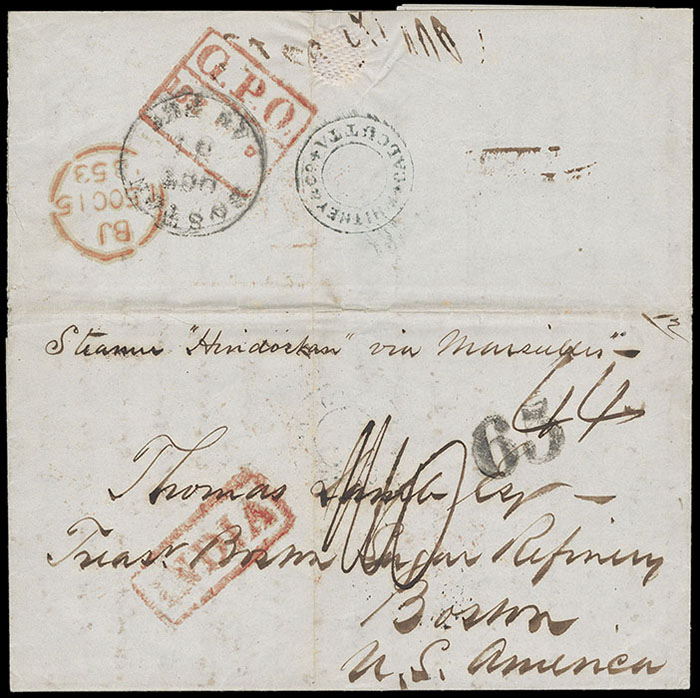 G.P.O.
BOSTON
OCT
BJ
OC 15
53
WHITNEY & CO CALCUTTA
Steamer "Hindostan" via Marseilles
44
65
Thomas Lamb Esq
Treasr Boston Sugar Refinery
INDIA
Boston
U.S. America